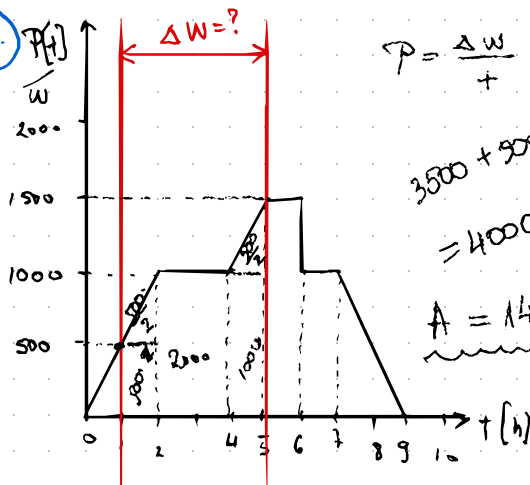 P[t]
W
ΔW=?
P = ΔW
t
3500 + 500
= 4000
A = 14
2000
1500
1000
500
500
2
500
2
500
2000
1000
0
2
4
5
6
7
8
9
10
t [h]